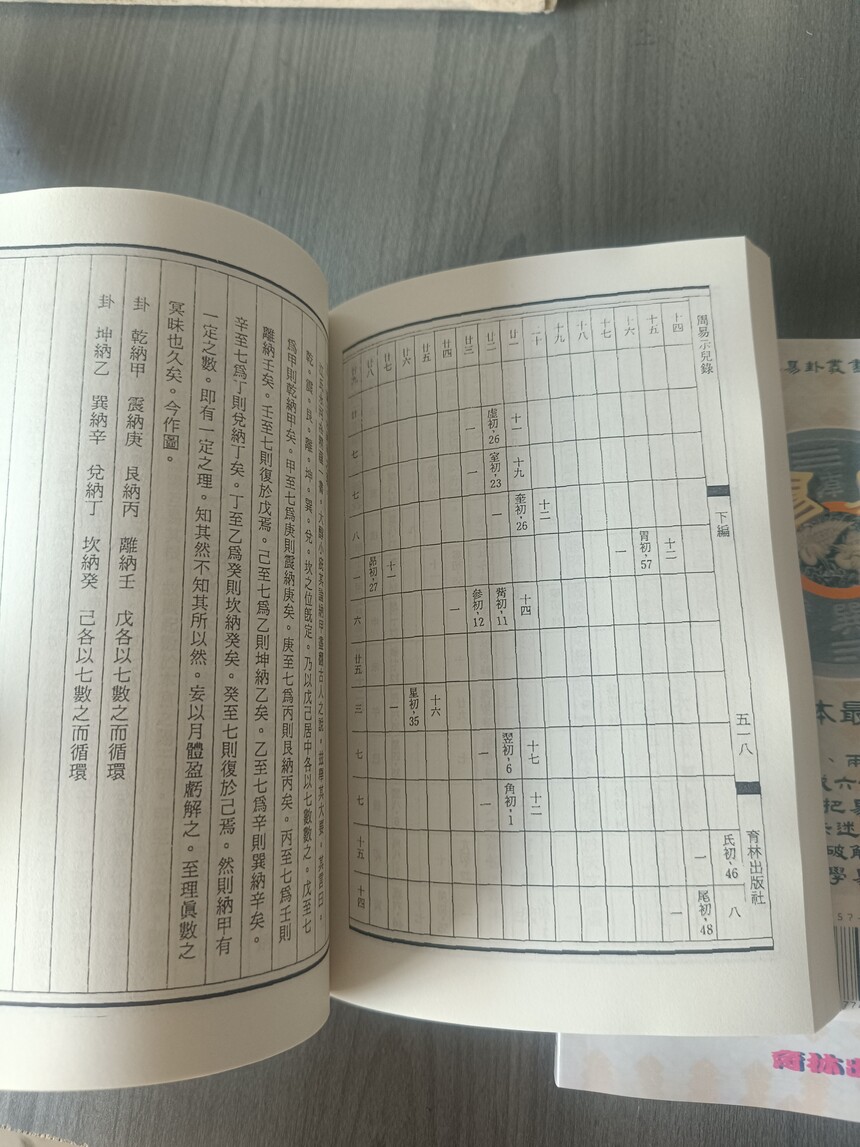 周易示兒錄
下編
五一八
育林出版社
十四
十五
十六
十七
十八
十九
二十
廿一
廿二
廿三
廿四
廿五
廿六
廿七
廿八
氐初·46
八
尾初·48
一
一
十二
胃初·57
一
十二
十七
十二
十一
十九
奎初·26
十四
翌初·6
角初·1
虛初·26
室初·23
一
觜初·11
一
一
一
一
參初·12
一
十六
星初·35
一
十一
昴初·27
七
七
八
一
六
廿五
三
七
七
十五
十四
乾。震。艮。離。坤。巽。兌。坎之位既定。乃以戊己居中各以七數數之。戊至七
爲甲則乾納甲矣。甲至七爲庚則震納庚矣。庚至七爲丙則艮納丙矣。丙至七爲壬則
離納壬矣。壬至七則復於戊焉。己至七爲乙則坤納乙矣。乙至七爲辛則巽納辛矣。
辛至七爲丁則兌納丁矣。丁至乙爲癸則坎納癸矣。癸至七則復於己焉。然則納甲有
一定之數。即有一定之理。知其然不知其所以然。妄以月體盈虧解之。至理眞數之
冥昧也久矣。今作圖。
卦 乾納甲 震納庚 艮納丙 離納壬 戊各以七數之而循環
卦 坤納乙 巽納辛 兌納丁 坎納癸 己各以七數之而循環
易卦叢書
育林出